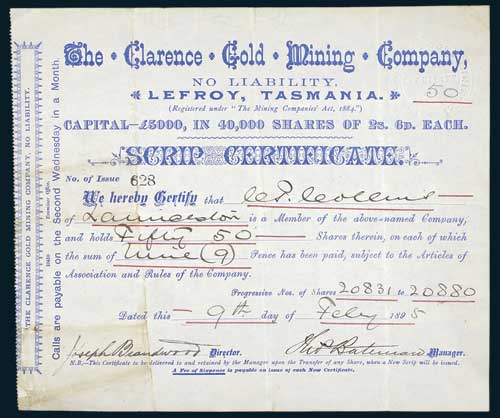 The Clarence Gold Mining Company,
NO LIABILITY.
LEFROY, TASMANIA.
50
(Registered under "The Mining Companies' Act, 1884.")
CAPITAL—£5000, IN 40,000 SHARES OF 2s. 6p. EACH.
SCRIP CERTIFICATE.
No. of Issue 628
We hereby Certify that Collins
of Launceston is a Member of the above-named Company,
and holds Fifty 50 Shares therein, on each of which
the sum of Nine (9) Pence has been paid, subject to the Articles of
Association and Rules of the Company.
Progressive Nos. of Shares 20831 to 20880
Dated this 9th day of Feby 1895
Joseph Director. Thos Bateman Manager.
N.B.—This Certificate to be delivered to and retained by the Manager upon the Transfer of any Share, when a New Scrip will be issued.
A Fee of Sixpence is payable on issue of each New Certificate.
THE CLARENCE GOLD MINING COMPANY, NO LIABILITY.
Calls are payable on the Second Wednesday in a Month.